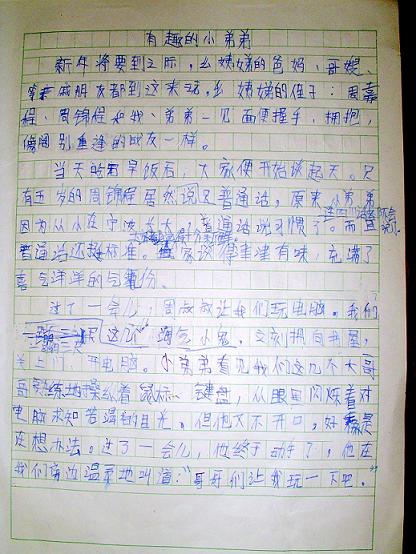 有趣的小弟弟
新年将要到之际，幺姨娣的爸妈、哥嫂、
亲戚朋友都到这来玩。幺姨娣的侄子：周嘉
程、周锦程和我、弟弟一见面便握手，拥抱，
像阔别重逢的战友一样。
当天的早饭后，大家便开始谈起天。只
有五岁的周锦程居然说又普通话，原来小弟弟
因为从小在宁波长大，普通话说习惯了。而且
连四川话都不会说了。
普通话还挺标准。大家谈得津津有味，充满了
喜气洋洋的气氛。
过了一会儿，周叔叔让我们玩电脑。我们
这几个淘气小鬼，立刻拥向书屋，
关上门，开电脑。小弟弟看见我们这几个大哥
哥熟练地操纵着鼠标、键盘，从眼里闪烁着对
电脑求知若渴的目光。但他又不开口，好像是
在想办法。过了一会儿，他终于动手了，他在
我们旁边温柔地叫道：“哥哥们让我玩一下吧。”